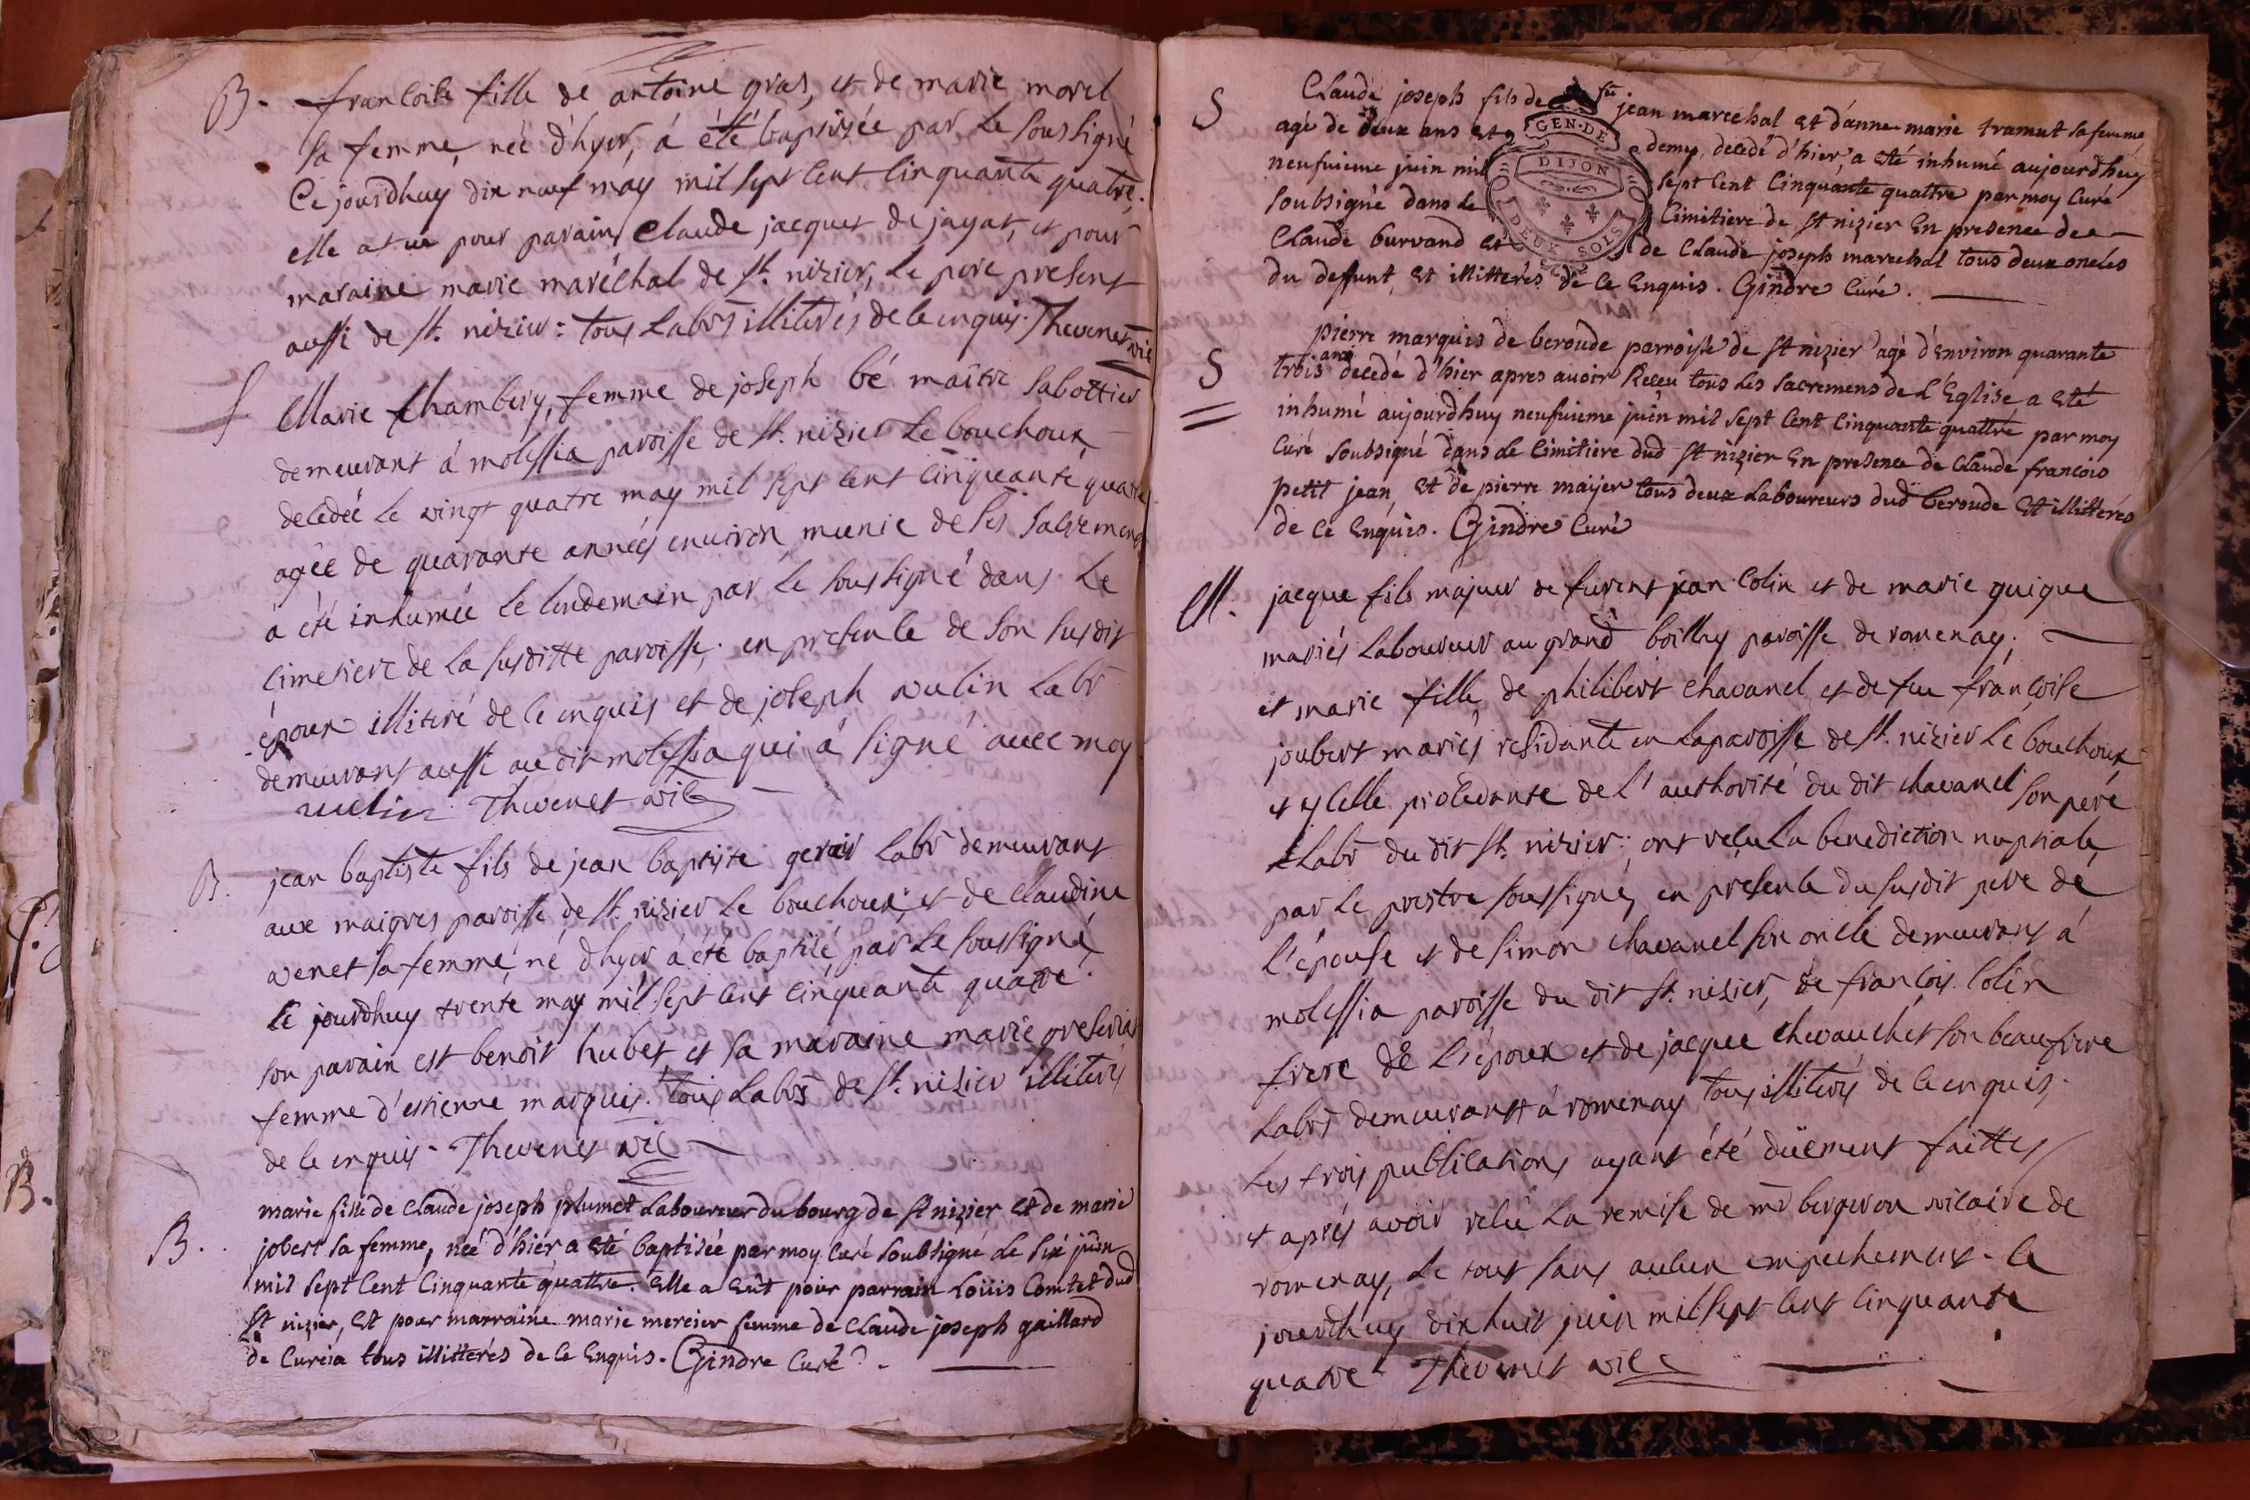 B. francoise fille de antoine gras, et de marie morel
sa femme, née d'hyer, á été baptisée par le soussigné
Ce jourdhuy dix neuf may mil sept cent cinquante quatre.
elle a eu pour parain Claude jacquet de jayat, et pour
maraine marie maréchal de st. nizier, le pere present
aussi de st. nizier: tous labrs illiterés de ce enquis. Thevenet vic
S Marie Chambery, femme de joseph bé maître sabottier
demeurant á molessia paroisse de st. nizier le bouchoux
decedée le vingt quatre may mil sept cent cinquante quatre
agée de quarante années environ munie de ses sacremens
á été inhumée le lendemain par le soussigné dans le
cimetiere de la susditte paroisse, en presence de son susdit
époux illiteré de ce enquis et de joseph vulin labr
demeurant aussi au dit molessia qui á signé avec moy
vulin Thevenet vic
B. jean baptiste fils de jean baptiste labr demeurant
aux maigres paroisse de st. nizier le bouchoux, et de Claudine
venet sa femme, né d'hyer á été baptisé par le soussigné
ce jourdhuy trente may mil sept cent cinquante quatre.
son parain est benoit hubet et sa maraine marie
femme d'estienne marquis. tous labrs de st. nizier illiterés
de ce enquis. Thevenet vic
B. marie fille de Claude joseph plumet laboureur du bourg de st nizier et de marie
jobert sa femme, neé d'hier a eté baptisée par moy Curé soubsigné le six juin
mil sept cent Cinquante quattre. Elle a eüt pour parrain Loüis Comtet dud
st nizier, et pour marraine marie mercier femme de Claude joseph gaillard
de Cureia tous illitterés de ce Enquis. Gindre Curé.
S Claude joseph fils de fu jean marechal et d'anne marie tramut sa femme,
agé de deux ans et demy, decedé d'hier, a eté inhumé aujourdhuy
neufvieme juin mil sept Cent Cinquante quattre par moy Curé
soubsigné dans le Cimitiere de st nizier En presence de
Claude burvand et de Claude joseph marechal tous deux oncles
du deffunt, Et illitterés de ce Enquis. Gindre Curé.
GEN. DE
DIJON
DEUX SOLS
S pierre marquis de beroude parroisse de st nizier agé d'Environ quarante
trois ans decedé d'hier apres avoir Receu tous les sacremens de l'Eglise a eté
inhumé aujourdhuy neufvieme juin mil sept Cent Cinquante quattre par moy
Curé soubsigné dans le Cimitiere dud st nizier En presence de Claude francois
petit jean, et de pierre maijer tous deux laboureurs dud beroude Et illitterés
de ce Enquis. Gindre Curé
M. jacque fils majeur de furent jean Colin et de marie guigue
mariés laboureur au grand paroisse de romenay;
et marie fille de philibert Chavanel et de feu françoise
joubert mariés residante en la paroisse de st. nizier le bouchoux
et ycelle procedante de l'authorité du dit chavanel son pere
labr du dit st. nizier; ont reçu la benediction nuptiale
par le prestre soussigné, en presence du susdit pere de
l'épouse et de simon chavanel son oncle demeurans á
molessia paroisse du dit st. nizier, de françois Colin
frere de l'époux et de jacque chevauchet son beaufrere
labrs demeurant á romenay tous illiterés de ce enquis.
les trois publications ayant été düement faittes
et aprés avoir reçu la remise de mr bergeron vicaire de
romenay, le tout sans aucun empechement. ce
jourdhuy dix huit juin mil sept cent cinquante
quatre Thevenet vic
B.